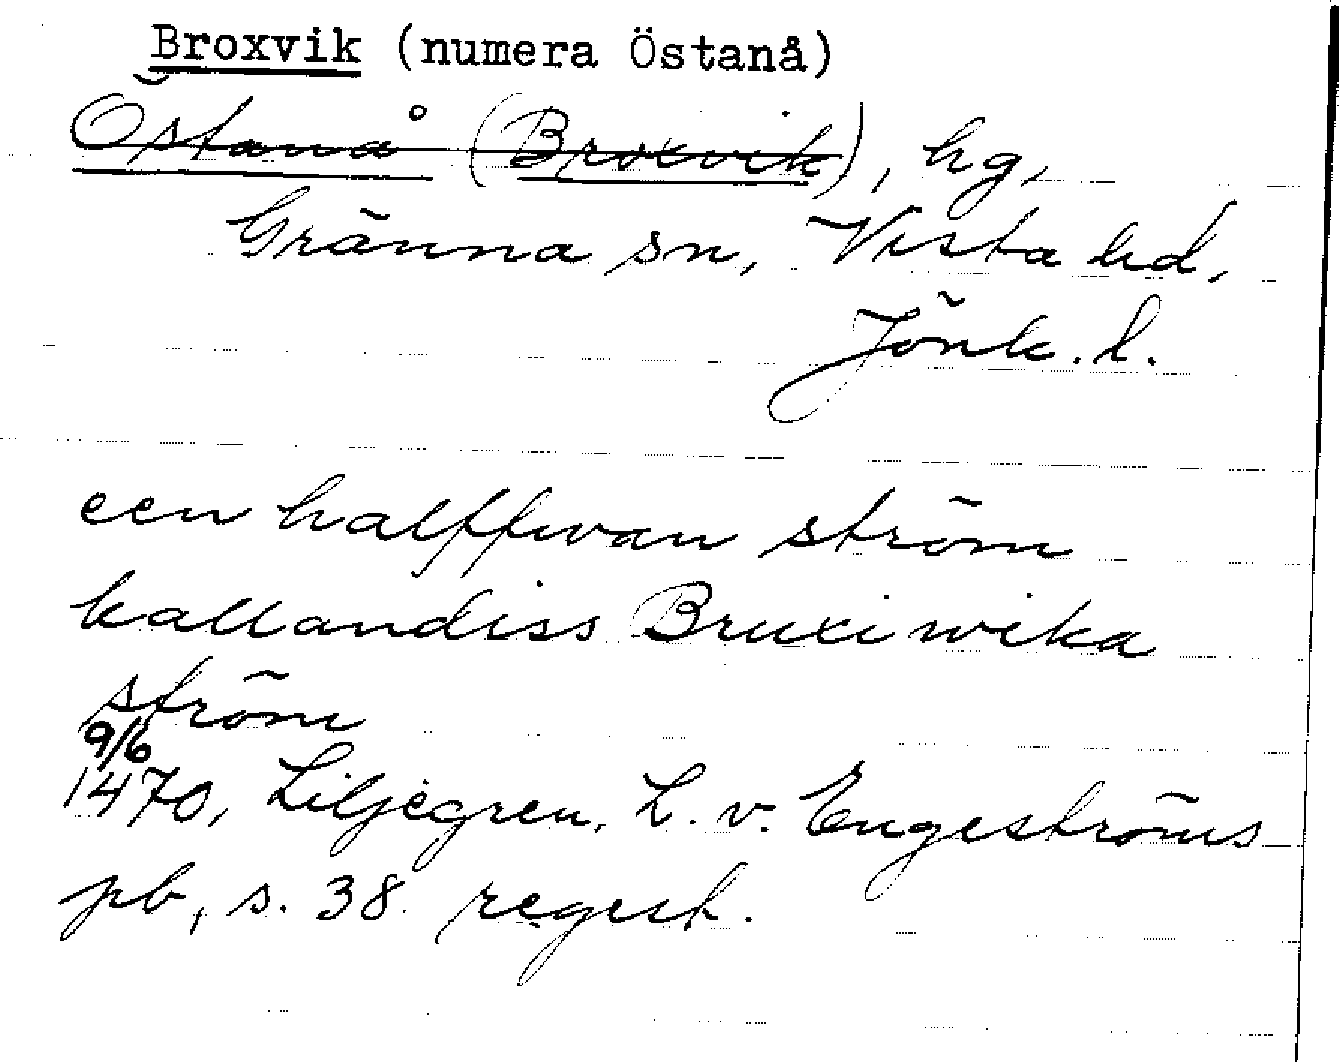 Broxvik (numera Östanå)
Östanå (Broxvik), hg,
Gränna sn, Vista hd,
Jönk. l.
een halffwan ström
kallandiss Bruxiwika
ström
9/6
1470, Liljegren, L. v. Engeströms
pb, s. 38 regest.